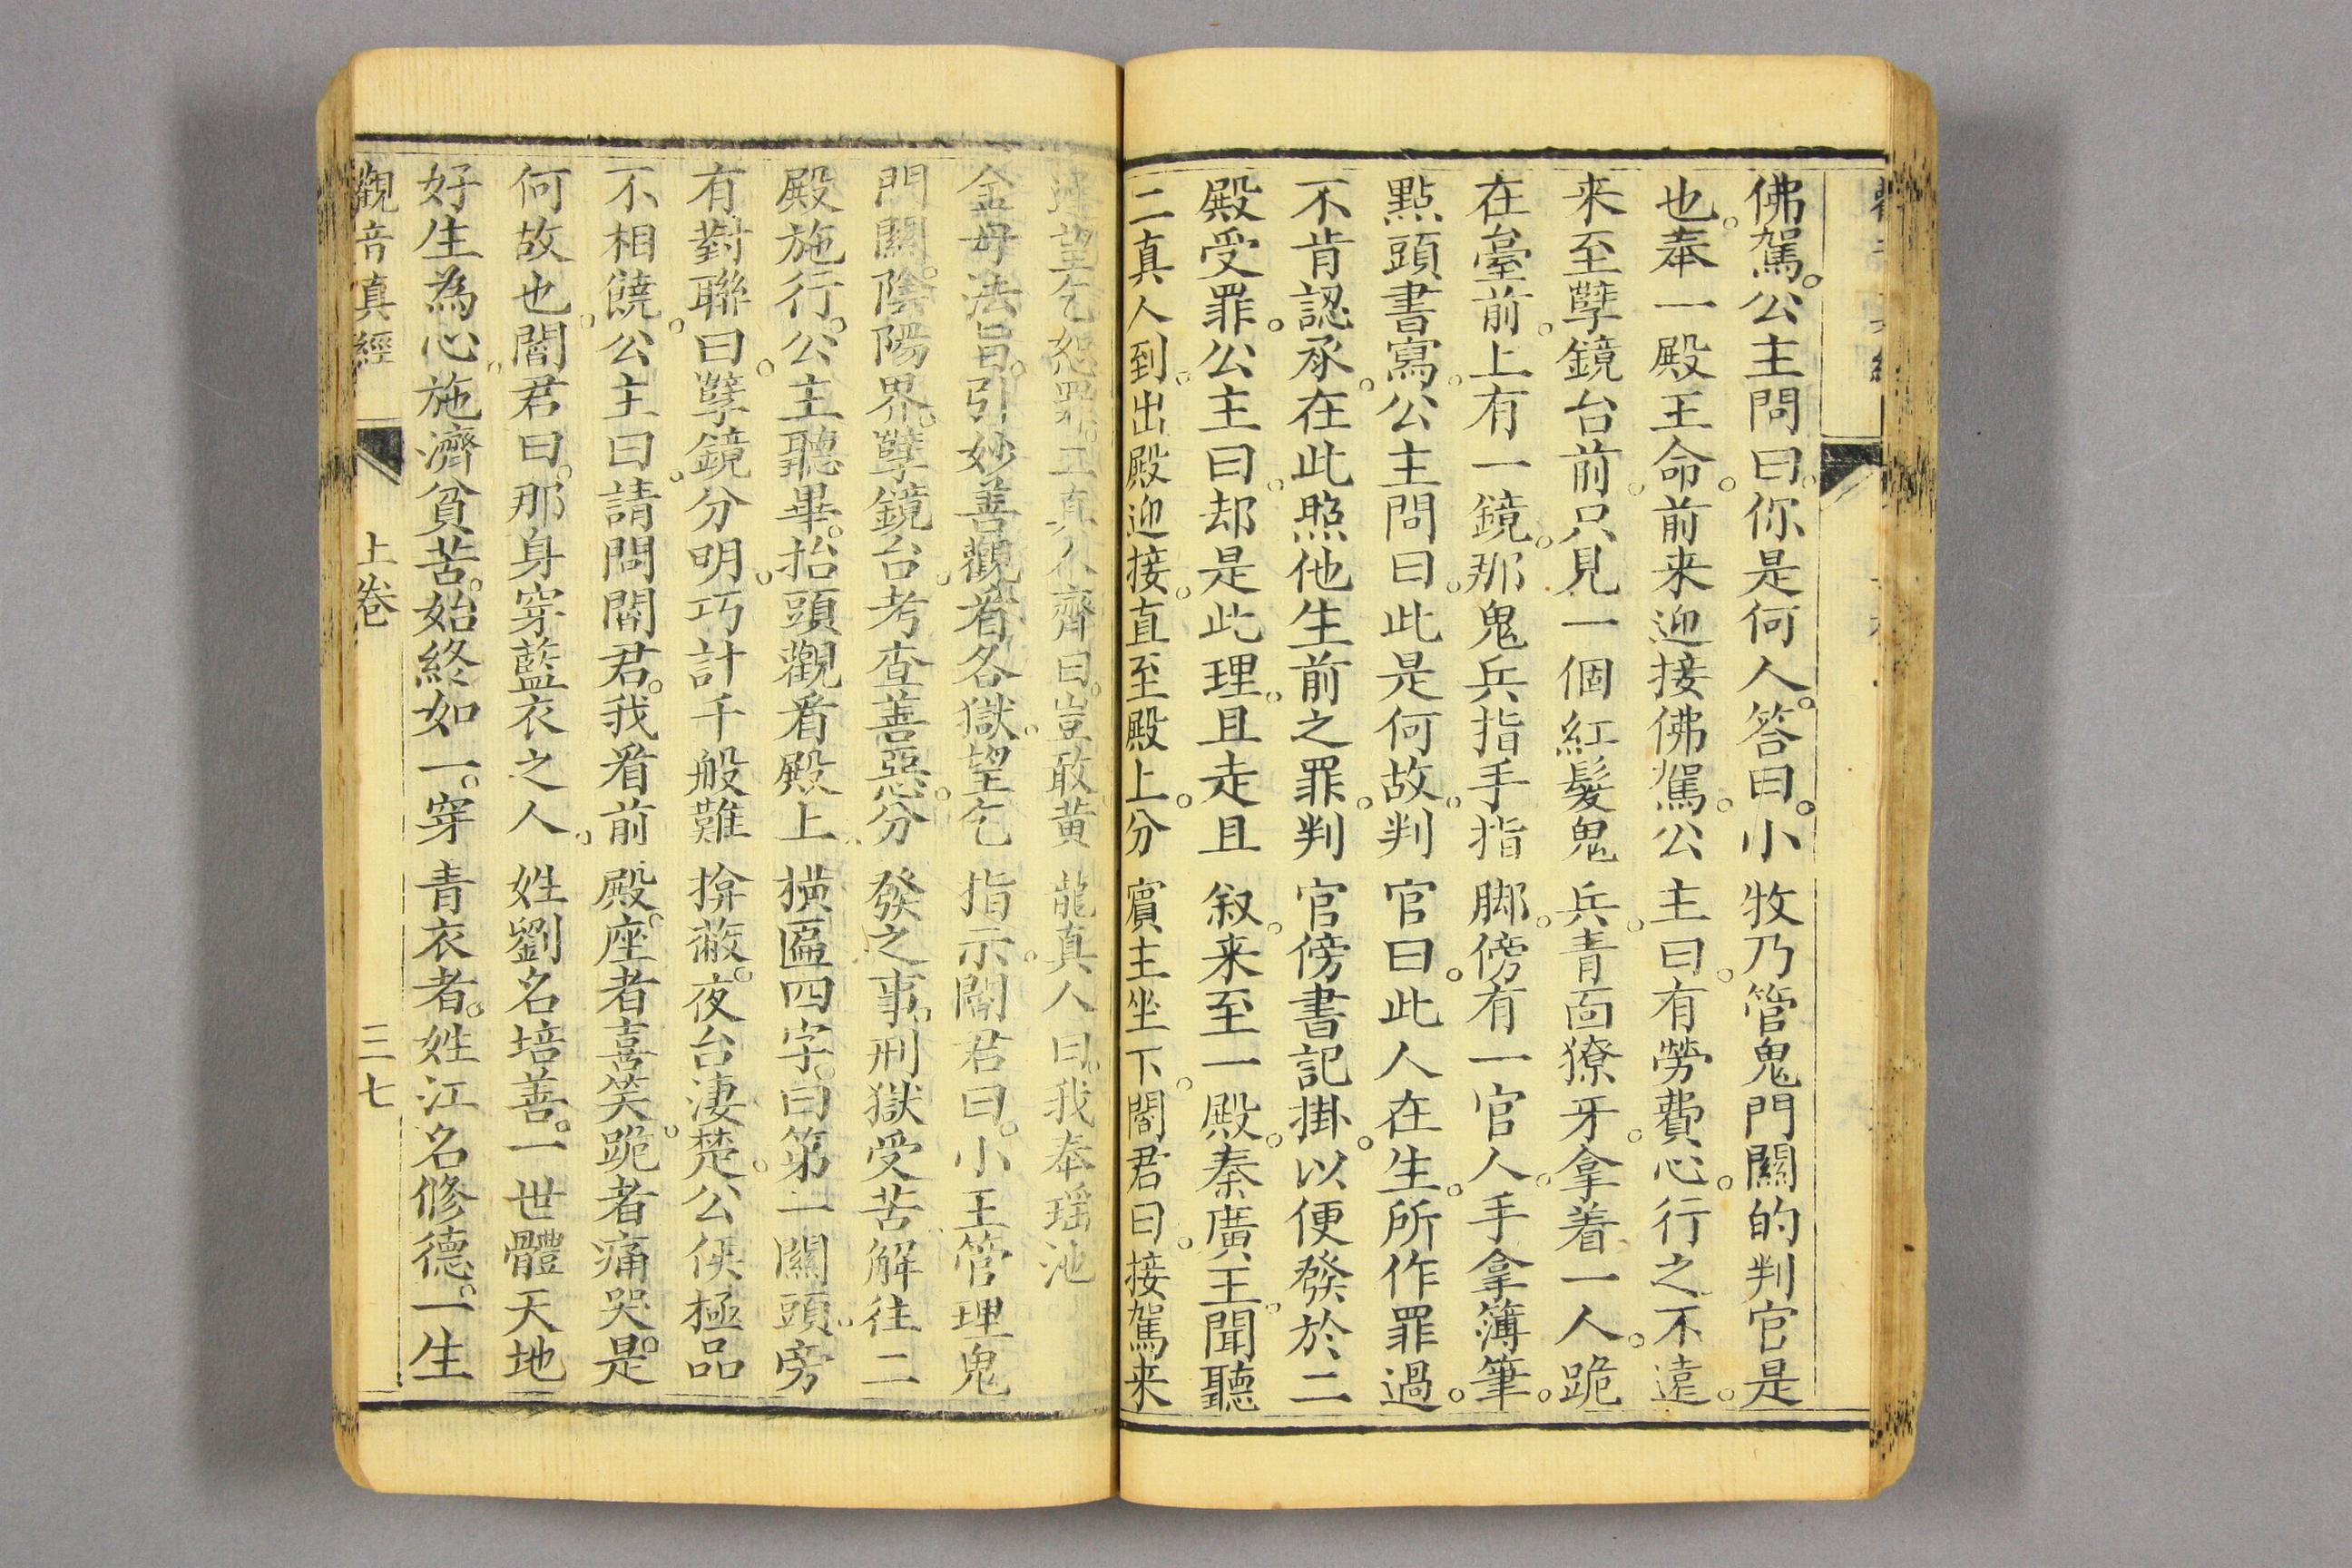 佛駕。公主問曰。你是何人。答曰。小牧乃管鬼門關的判官是
也。奉一殿王命。前来迎接佛駕。公主曰。有勞費心。行之不遠。
来至孽鏡台前。只見一個紅髮鬼兵。青面獠牙。拿着一人。跪
在臺前。上有一鏡。那鬼兵指手指脚。傍有一官人。手拿簿筆。
點頭書寫。公主問曰。此是何故。判官曰。此人在生。所作罪過。
不肯認承。在此照他生前之罪。判官傍書記掛。以便發於二
殿受罪。公主曰。却是此理。且走且叙。来至一殿。秦廣王。聞聽
二真人到。出殿迎接。直至殿上。分賓主坐下。閻君曰。接駕来
遲望乞恕罪。二真人齊曰。豈敢黄龍真人曰。我奉瑶池
金母法旨。引妙善觀看各獄。望乞指示。閻君曰。小王管理鬼
門關。陰陽界。孽鏡台。考查善惡。分發之事。刑獄受苦。解往二
殿施行。公主聽畢。抬頭觀看殿上。横匾四字。曰第一關頭。旁
有對聯曰。孽鏡分明。巧計千般難揜蔽。夜台淒楚。公侯極品
不相饒。公主曰。請問閻君。我看前殿。座者喜笑。跪者痛哭。是
何故也。閻君曰。那身穿藍衣之人。姓劉名培善。一世體天地
好生為心。施濟貧苦。始終如一。穿青衣者。姓江名修德。一生
觀音真經 上卷 三七